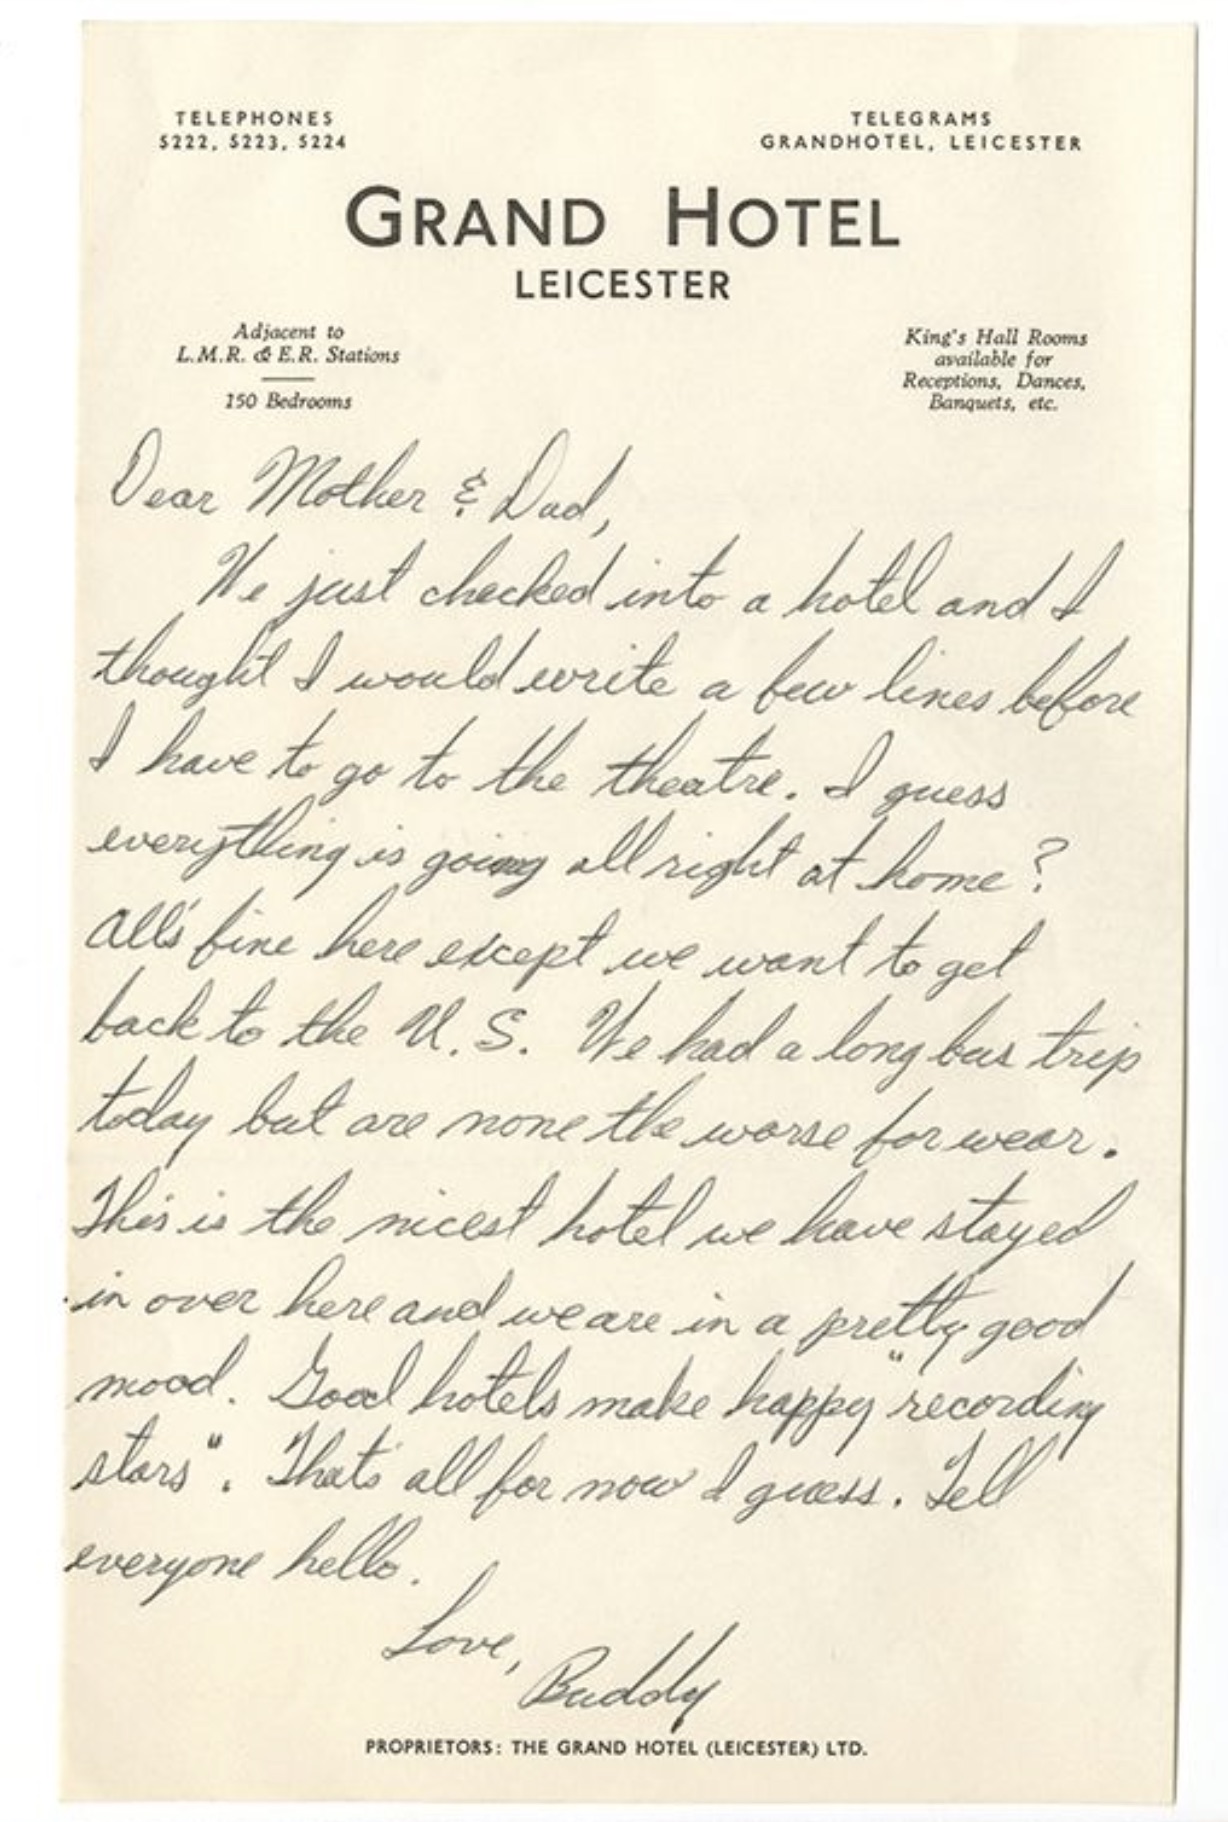 TELEPHONES
5222, 5223, 5224
TELEGRAMS
GRANDHOTEL, LEICESTER
GRAND HOTEL
LEICESTER
Adjacent to
L.M.R. & E.R. Stations
150 Bedrooms
King's Hall Rooms
available for
Receptions, Dances,
Banquets, etc.
Dear Mother & Dad,
We just checked into a hotel and I
thought I would write a few lines before
I have to go to the theatre. I guess
everything is going all right at home?
All's fine here except we want to get
back to the U.S. We had a long bus trip
today but are none the worse for wear.
This is the nicest hotel we have stayed
in over here and we are in a pretty good
mood. Good hotels make happy "recording
stars". That's all for now I guess. Tell
everyone hello.
Love,
Buddy
PROPRIETORS: THE GRAND HOTEL (LEICESTER) LTD.